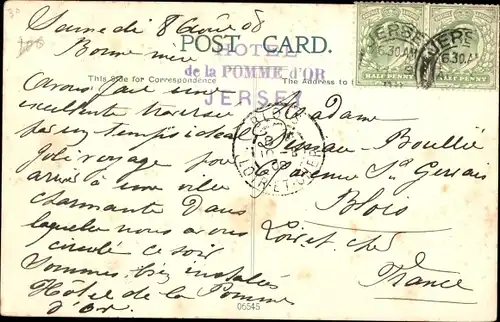 Samedi 8 Août 08
Bonne mère
POST CARD.
HOTEL
de la POMME d'OR
JERSEY
This Side for Correspondence
The Address to
HALF PENNY
HALF PENNY
JERSEY
6.30 AM
JERS
6.30 AM
Avons fait une
excellente traversée
par un temps idéal
Joli voyage pour
arrivé à une ville
charmante dans
laquelle nous avons
circulé ce soir
Sommes bien installés
Hôtel de la Pomme
d'Or
BLOIS
LOIR-ET-CHER
Madame
Boullié
Blois
Loir et cher
France
06545